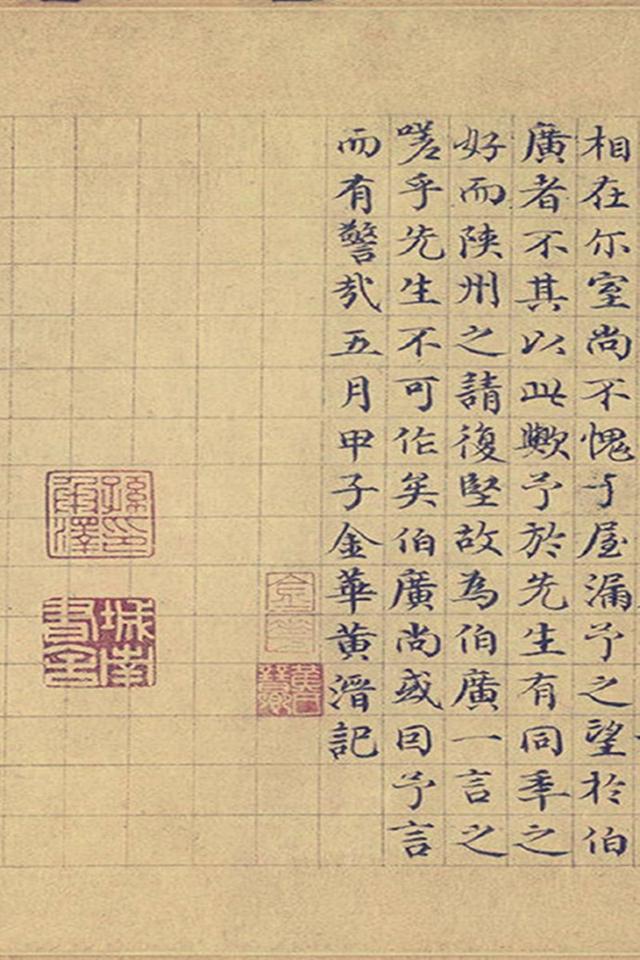 相在尓室尚不愧于屋漏予之望於伯
廣者不其以此歟予於先生有同年之
好而陝州之請復堅故為伯廣一言之
嗟乎先生不可作矣伯廣尚或因予言
而有警哉五月甲子金華黃溍記
城南書舍